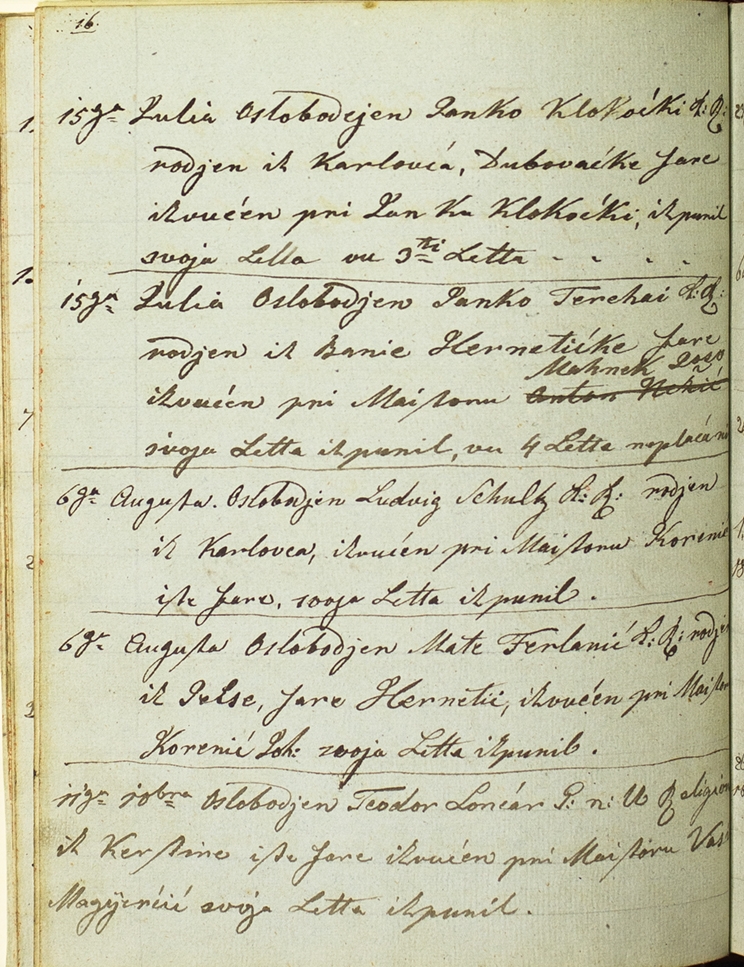 16.
15ga Julia Oslobodjen Janko Klokočki K: R:
rodjen iz Karlovća, Dubovačke Fare
izvučen pri Janku Klokočki, izpunil
svoja Letta vu 3ti Letta - - - -
15ga Julia Oslobodjen Janko Terchai K: R:
rodjen iz Banie Hernetičke Fare
izvučen pri Maistoru Anton Nekić
svoja Letta izpunil, vu 4 Letta
6ga Augusta. Oslobodjen Ludvig Schultz K: R: rodjen
iz Karlovca, izvučen pri Maistoru Korenić
iste Fare, svoja Letta izpunil.
6ga Augusta Oslobodjen Mate Ferlanić K: R: rodjen
iz Fare Hernetić, izvučen pri Maistor
Korenić Joh: svoja Letta izpunil.
11ga 10bra Oslobodjen Teodor Lončar G: n: U Religion
iz Kerstine iste Fare izvučen pri Maistoru Vaso
svoja Letta izpunil.